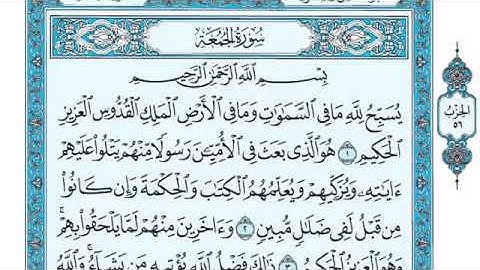 سُورَةُ الجُمُعَةِ
بِسْمِ اللَّهِ الرَّحْمَٰنِ الرَّحِيمِ
يُسَبِّحُ لِلَّهِ مَا فِي السَّمَٰوَٰتِ وَمَا فِي الْأَرْضِ الْمَلِكِ الْقُدُّوسِ الْعَزِيزِ
الْحَكِيمِ ١ هُوَ الَّذِي بَعَثَ فِي الْأُمِّيِّـۧنَ رَسُولًا مِّنْهُمْ يَتْلُوا۟ عَلَيْهِمْ
ءَايَٰتِهِۦ وَيُزَكِّيهِمْ وَيُعَلِّمُهُمُ الْكِتَٰبَ وَالْحِكْمَةَ وَإِن كَانُوا۟
مِن قَبْلُ لَفِي ضَلَٰلٍ مُّبِينٍ ٢ وَءَاخَرِينَ مِنْهُمْ لَمَّا يَلْحَقُوا۟ بِهِمْ
وَهُوَ الْعَزِيزُ الْحَكِيمُ ٣ ذَٰلِكَ فَضْلُ اللَّهِ يُؤْتِيهِ مَن يَشَآءُ وَاللَّهُ
الحِزْبُ
٥٦